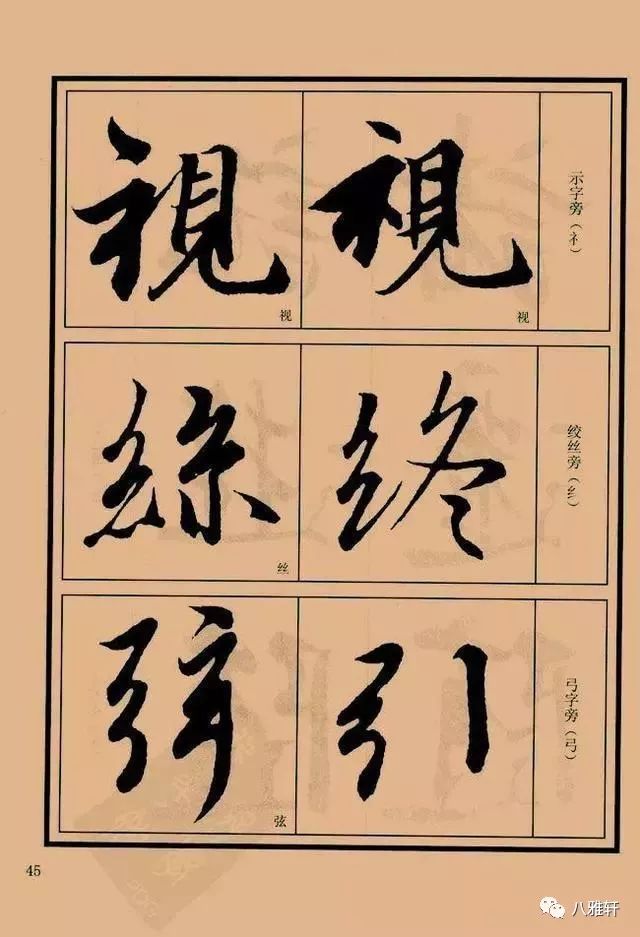 示字旁（礻）
視
视
視
视
绞丝旁（纟）
终
絲
丝
弓字旁（弓）
引
弦
弦
45
八雅轩